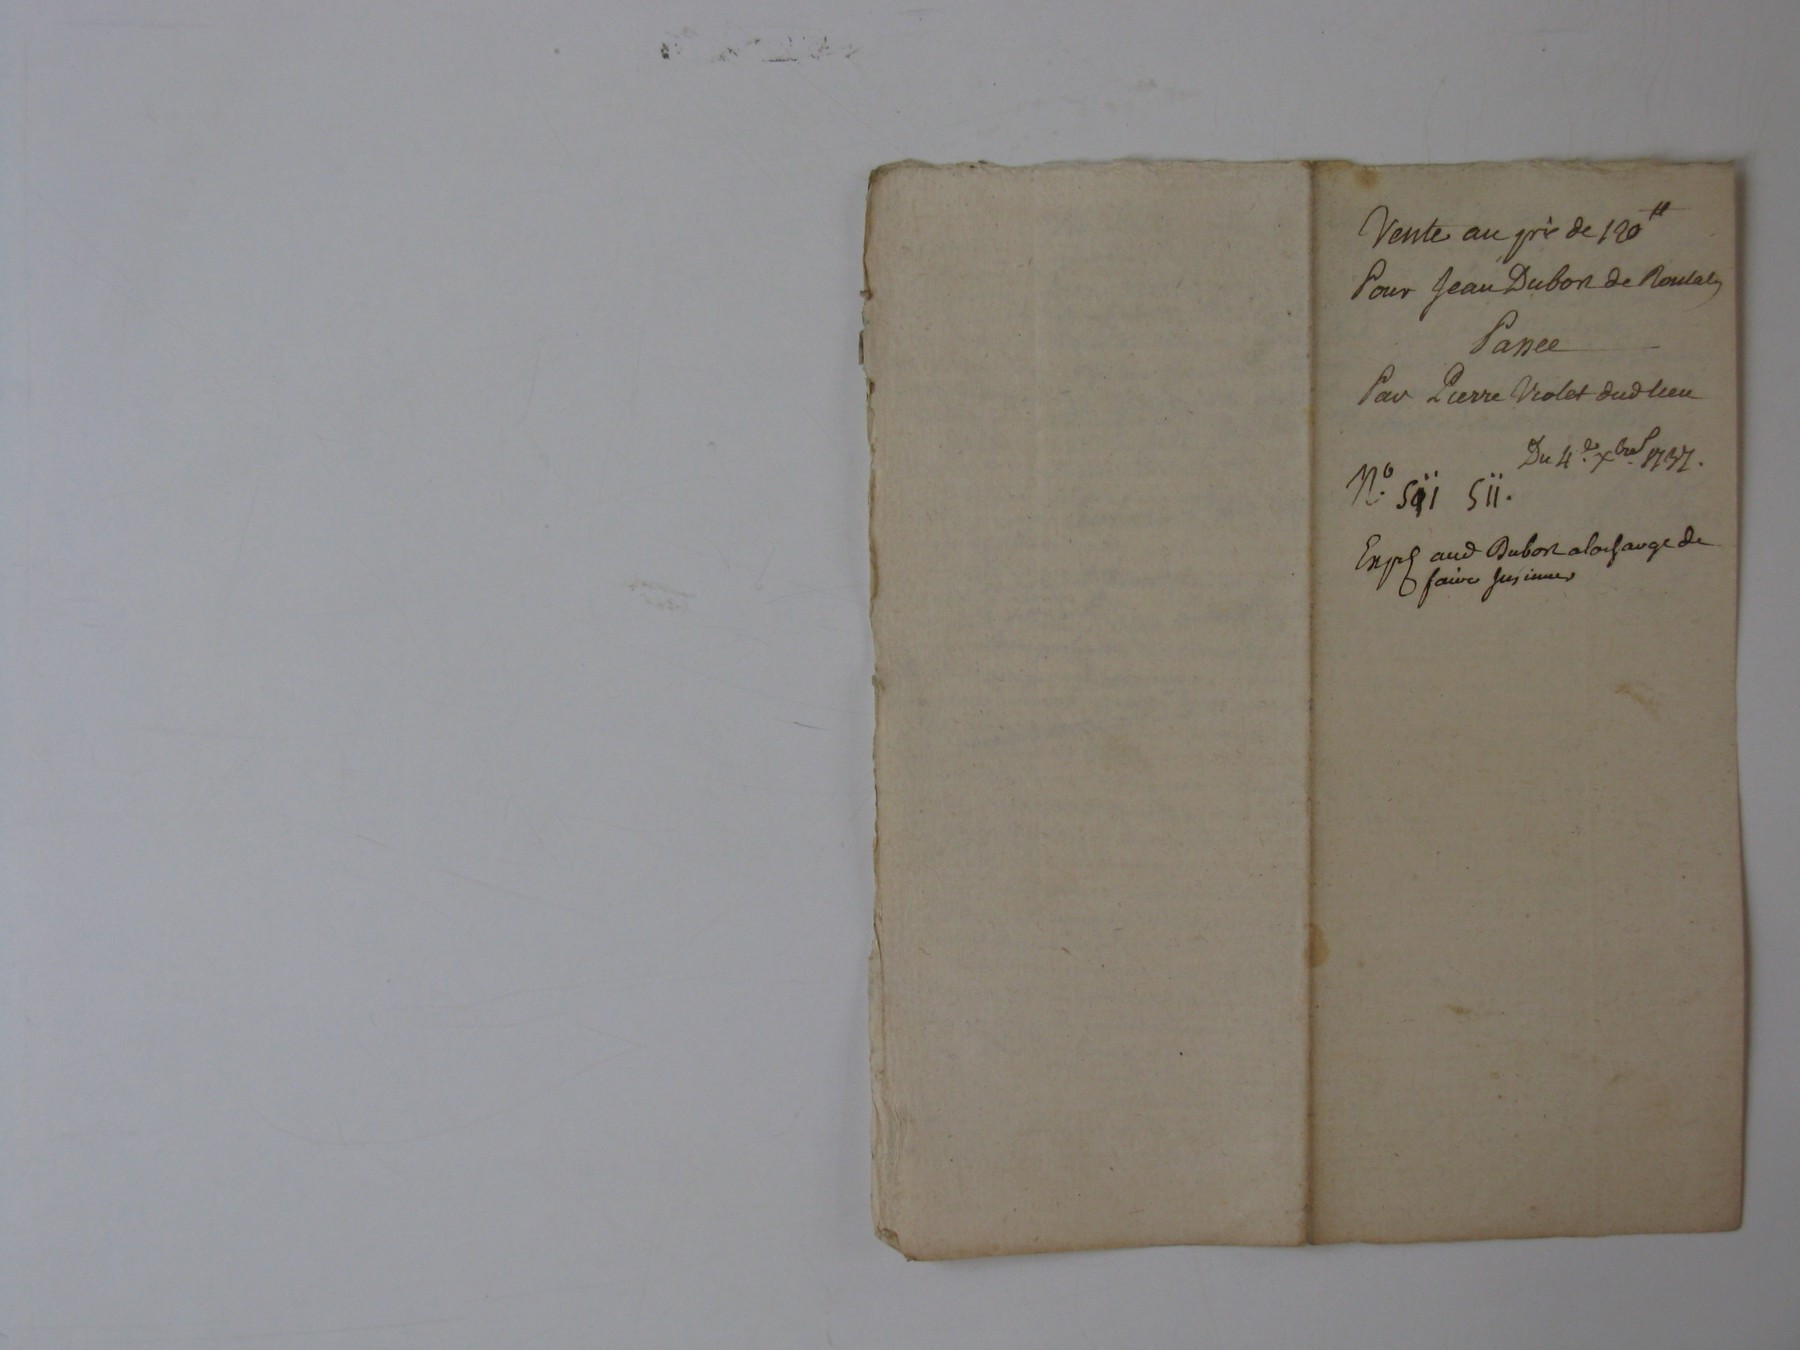 Vente au prix de 120 tt
Pour Jean Dubost de
Passee
Par Pierre Violet dud lieu
Du 4e. Xbre 1737.
No. 511.
aud Dubost a la charge de
faire